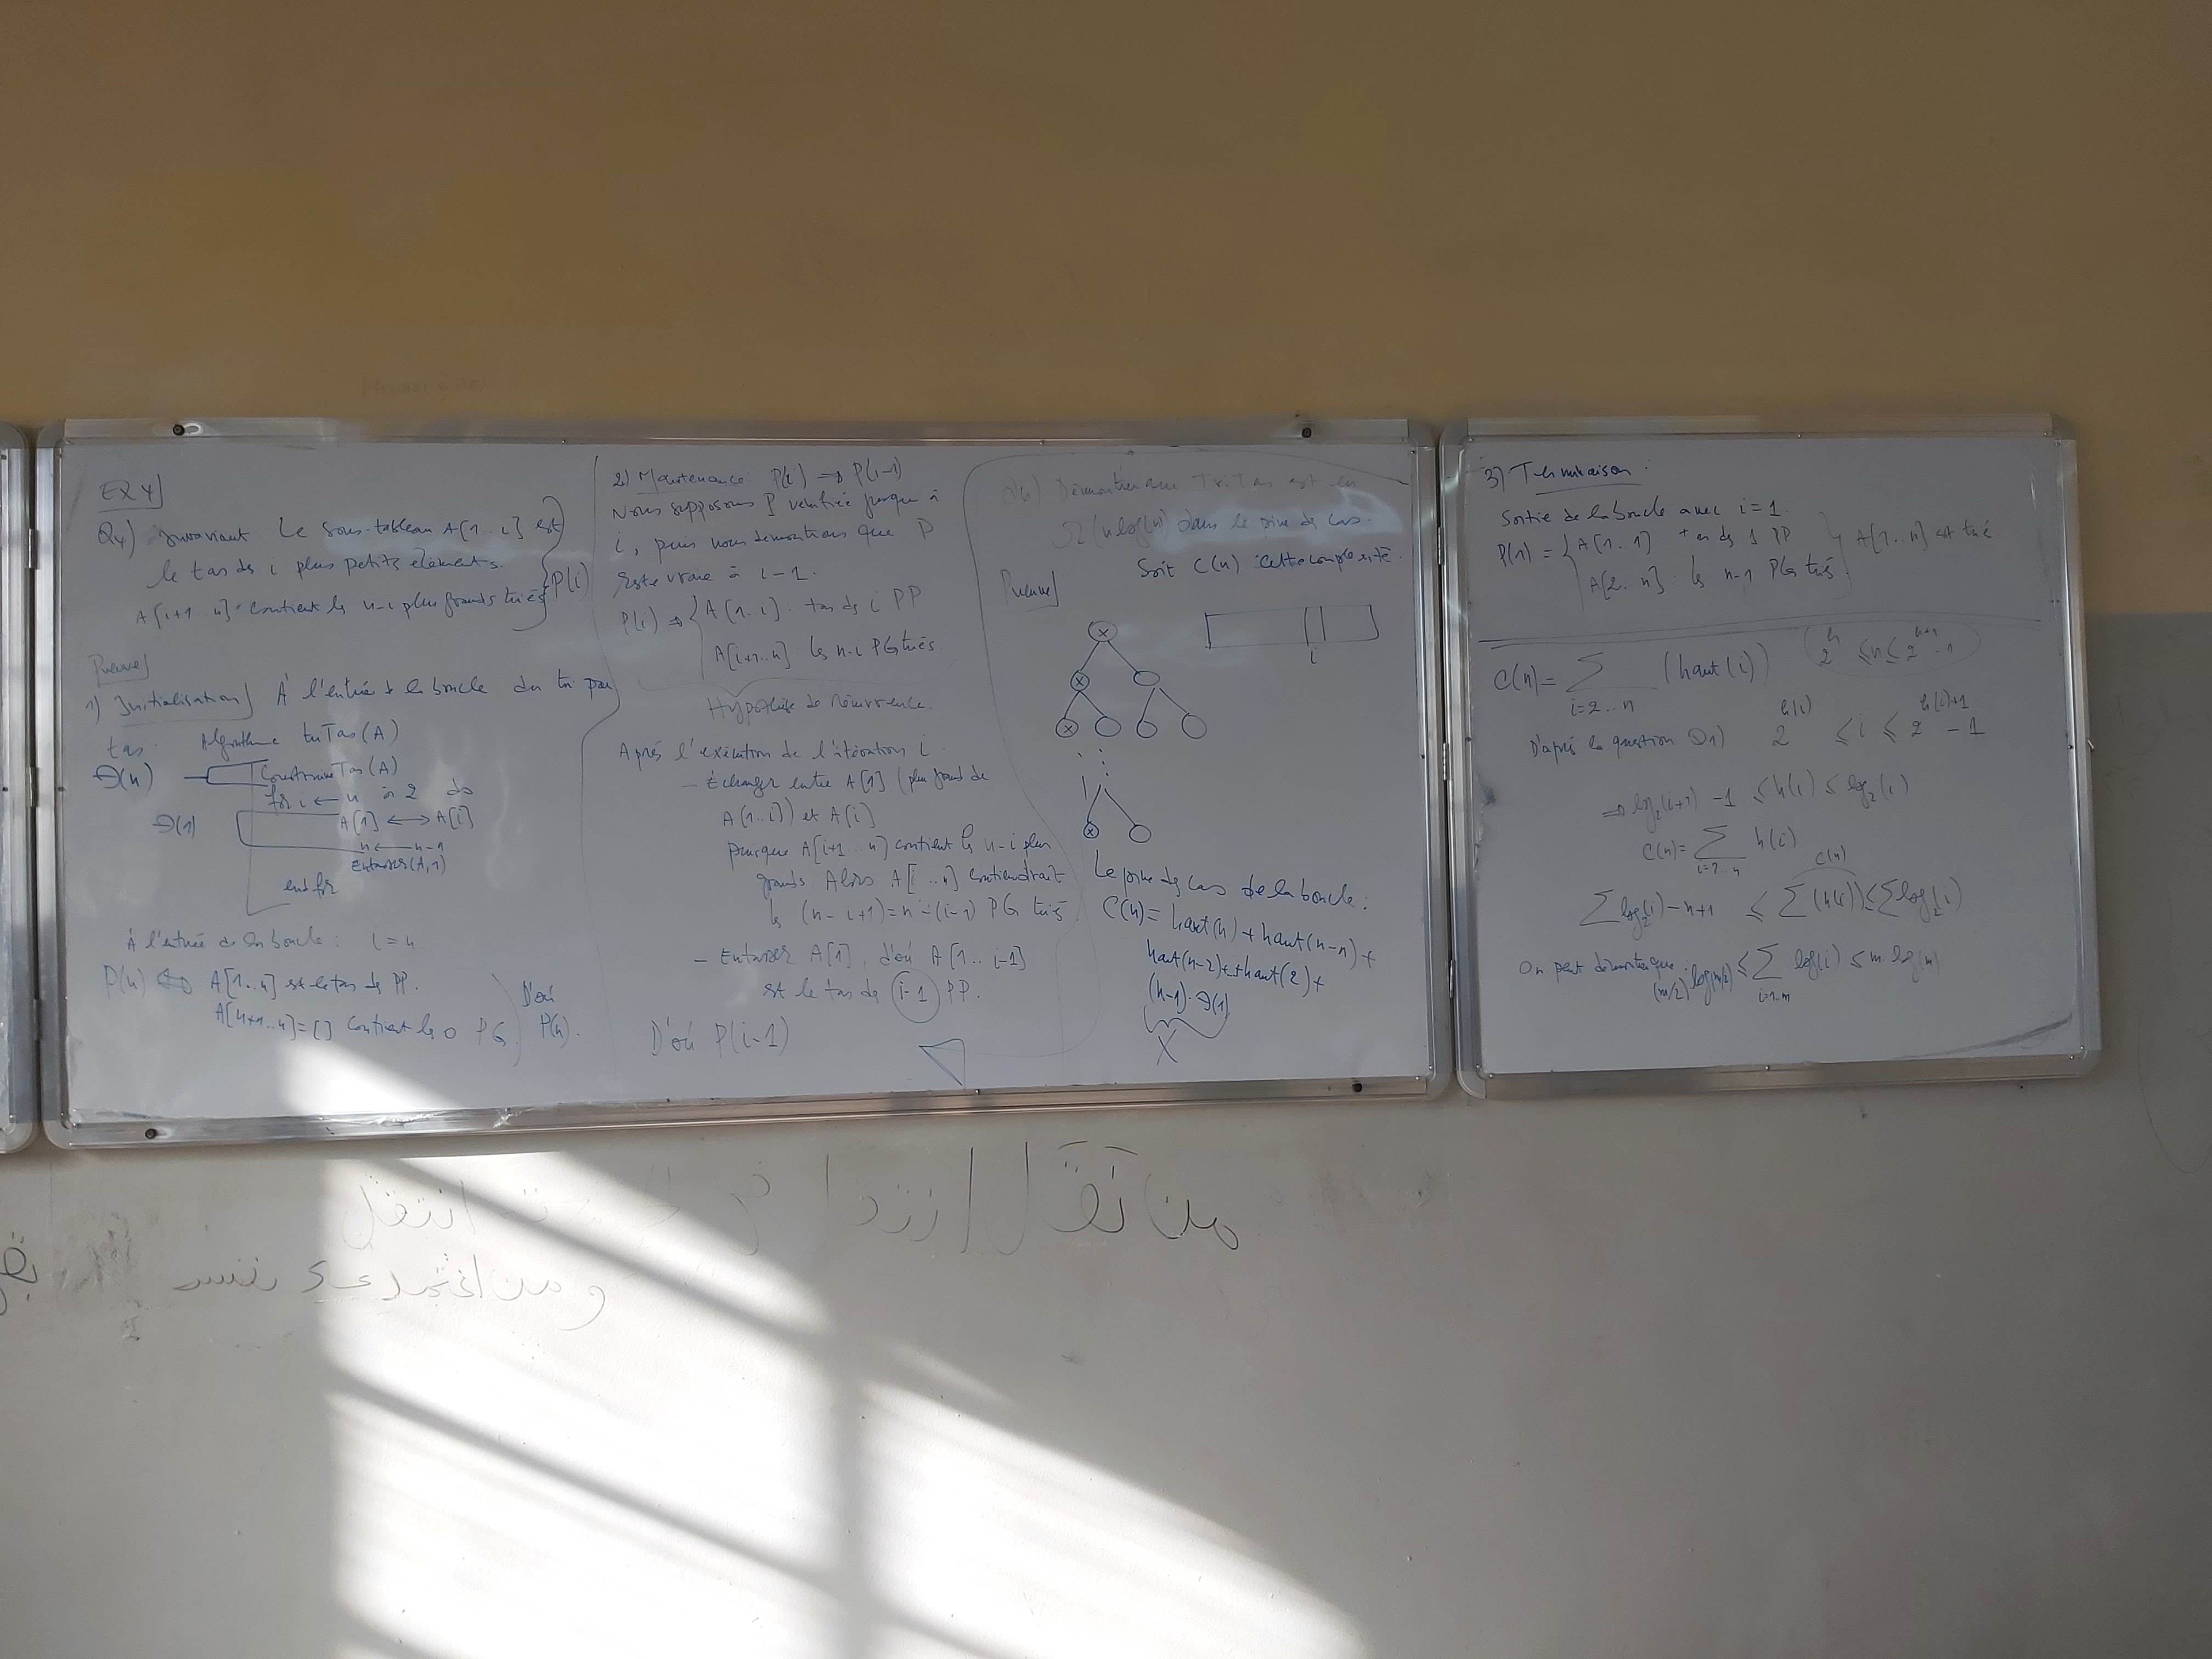 EX 4
Q4) Invariant Le sous-tableau A[1..i] est
le tas des i plus petits éléments.
A[i+1..n] contient les n-i plus grands triés
P(i)
Preuve
1) Initialisation À l'entrée de la boucle du tri par
tas:
Algorithme triTas(A)
Θ(n) ConstruireTas(A)
for i ← n à 2 do
Θ(1) A[1] ↔ A[i]
n ← n-1
Entasser(A,1)
endfor
À l'entrée de la boucle: i = n
P(n) ⇔ A[1..n] est le tas de PP.
A[n+1..n] = [] contient les 0 PG
D'où P(n).
2) Maintenance: P(i) ⇒ P(i-1)
Nous supposons P vérifiée jusque à
i, puis nous démontrons que P
reste vraie à i-1.
P(i) ⇒ A[1..i]: tas de i PP
A[i+1..n] les n-i PG triés
Hypothèse de récurrence.
Après l'exécution de l'itération i.
- Échanger entre A[1] (plus grand de
A(1..i)) et A[i]
puisque A[i+1..n] contient les n-i plus
grands Alors A[i..n] contiendrait
les (n-i+1) = n-(i-1) PG triés
- Entasser A[1], d'où A[1..i-1]
est le tas de i-1 PP.
D'où P(i-1)
Démontrer que TriTas est en
Ω(n log(n)) dans le pire des cas.
Soit C(n) cette complexité.
Preuve
i
Le pire des cas de la boucle:
C(n) = haut(n) + haut(n-1) +
haut(n-2) + .. + haut(2) +
(n-1).Θ(1)
X
3) Terminaison:
Sortie de la boucle avec i = 1.
P(1) = A[1..1] tas de 1 PP
A[2..n]: les n-1 PGs triés
A[1..n] est trié
C(n) = ∑ i=2..n (haut(i)) 2^h ≤ n ≤ 2^{h+1} - 1
D'après la question Q1) 2^{h(i)} ≤ i ≤ 2^{h(i)+1} - 1
⇒ log₂(i+1) - 1 ≤ h(i) ≤ log₂(i)
C(n) = ∑ i=2..n h(i)
C(n)
∑ log₂(i) - n+1 ≤ ∑(h(i)) ≤ ∑ log₂(i)
On peut démontrer que: (m/2) log(m/2) ≤ ∑ i=1..m log(i) ≤ m.log(m)
من نقل
انتقل
ومن اعتمد على نفسه